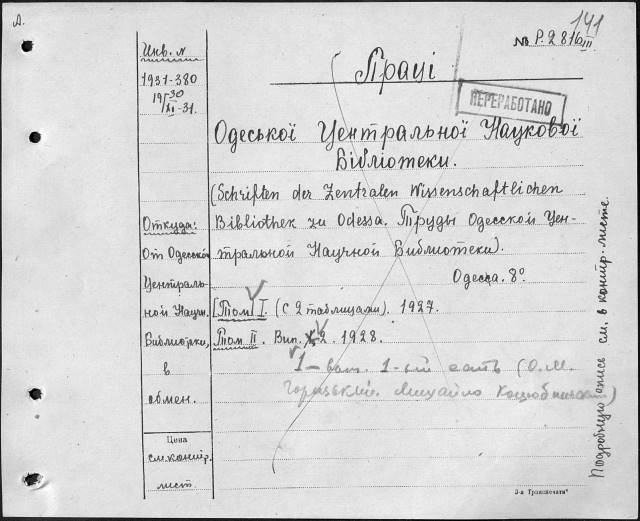 А.
141
№ Р. 2816 III
Инв. N
1931-380
19 30/XI -31.
Праці
ПЕРЕРАБОТАНО
Одеської Центральної Наукової
Бібліотеки.
(Schriften der Zentralen Wissenschaftlichen
Bibliothek zu Odessa. Труды Одесской Цен-
тральной Научной Библиотеки).
Одесса. 8°.
[Том] I. (С 2 таблицами). 1927.
Том II. Вип. 2. 1928.
1 – вып. 1-ый есть (О.М.
Михайло Коцюбинський)
Откуда:
От Одесской
Централь-
ной Научн.
Библиотеки,
в
обмен.
Цена
см. контр.
лист
Подробную опись см. в контр.-листе.
3-я Гранпечати"